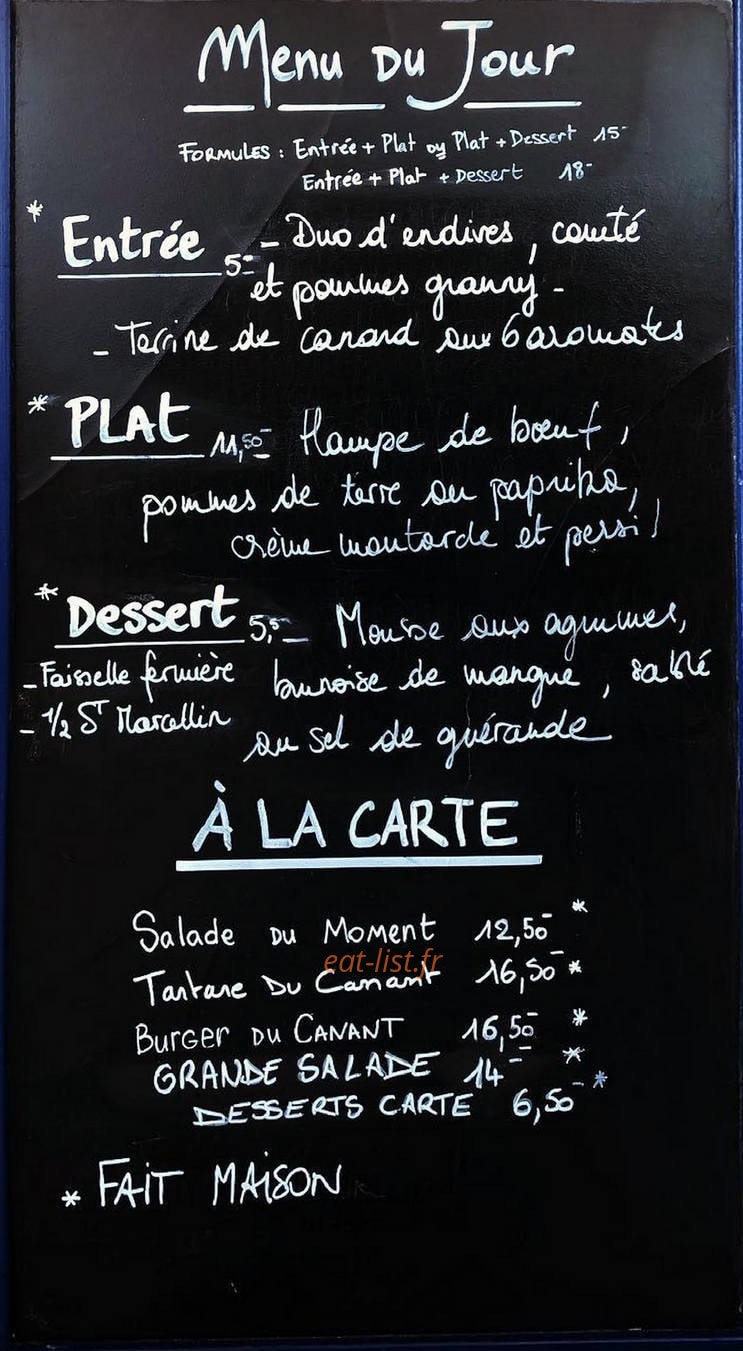 Menu Du Jour
FORMULES : Entrée + Plat ou Plat + Dessert 15-
Entrée + Plat + Dessert 18-
* Entrée 5- - Duo d'endives, comté
et pommes granny -
- Terrine de canard aux 6 aromates
* PLAt 11,50- Hampe de bœuf,
pommes de terre au paprika,
crème moutarde et persil
* Dessert 5,- Mousse aux agrumes,
- Faisselle fermière brunoise de mangue, sablé
- 1/2 St Marcellin
au sel de guérande
À LA CARTE
Salade DU MOMENT 12,50- *
eat-list.fr
Tartare DU Canant 16,50- *
BURGER DU CANANT 16,50- *
GRANDE SALADE 14- *
DESSERTS CARTE 6,50- *
* FAIT MAISON